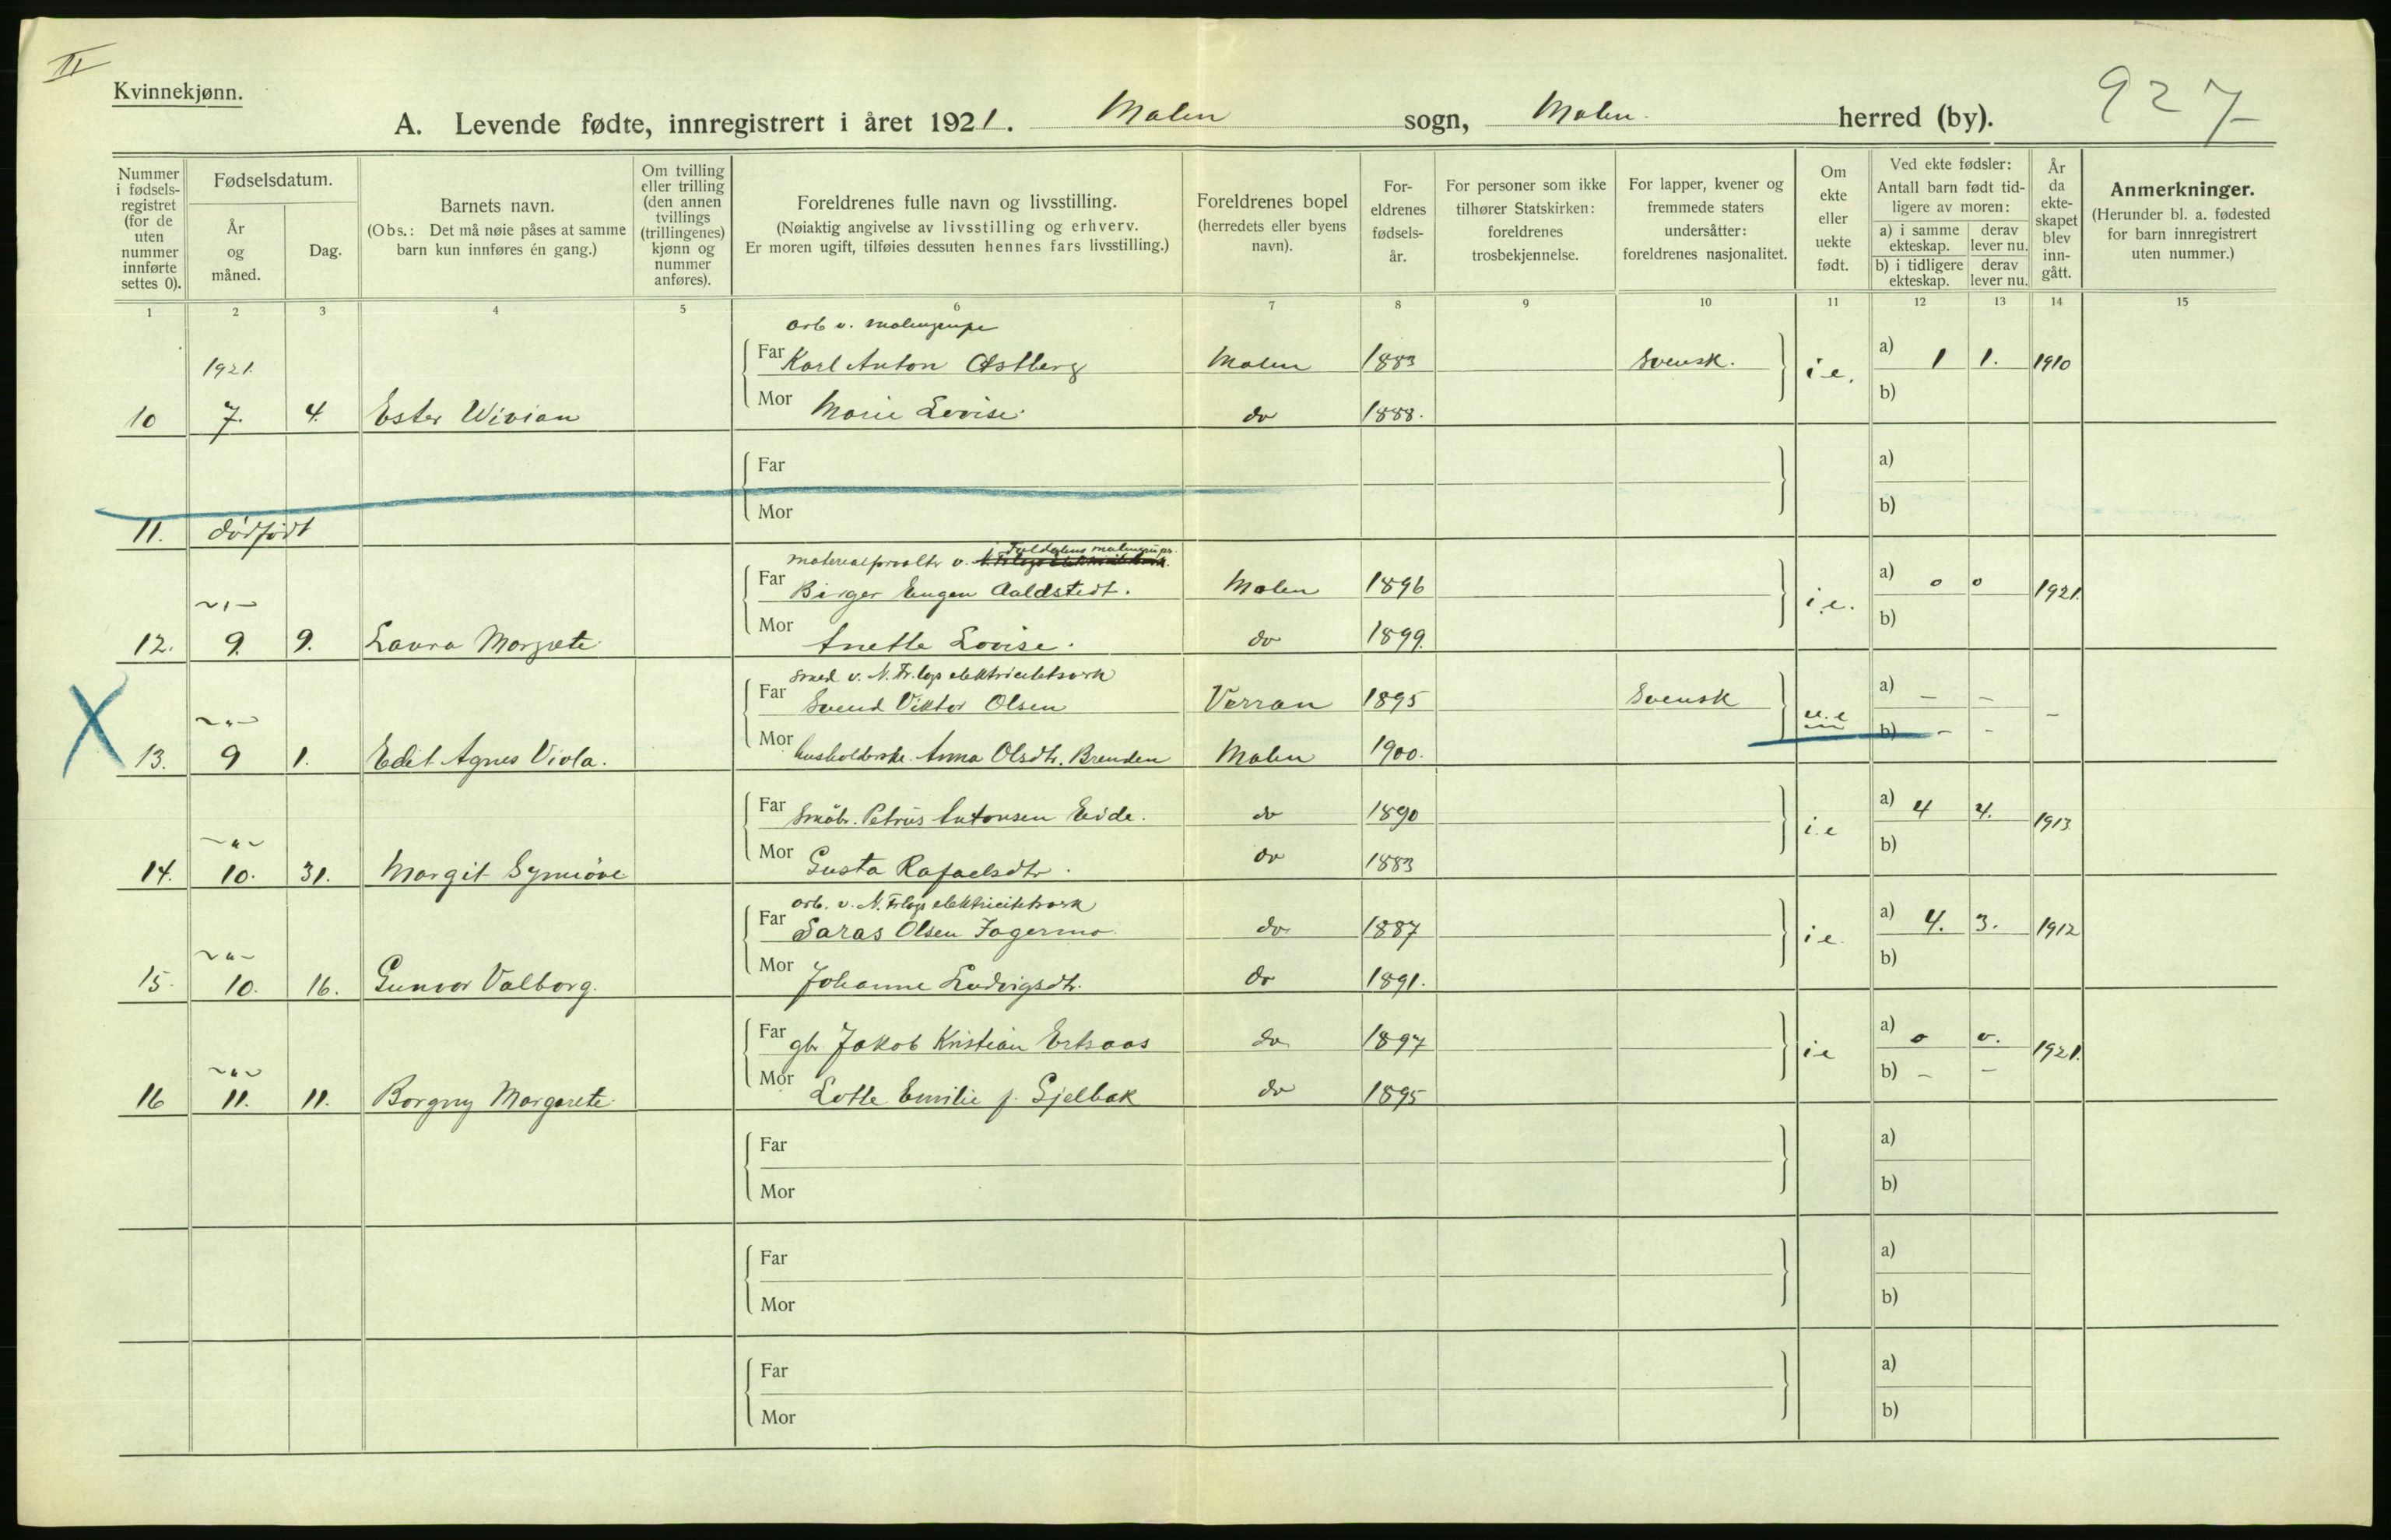 II
Kvinnekjønn.
927
A. Levende fødte, innregistrert i året 1921. Malm sogn, Malm herred (by).
Nummer i fødsels-registret (for de uten nummer innførte settes 0).
Fødselsdatum.
År og måned.
Dag.
Barnets navn.
(Obs.: Det må nøie påses at samme barn kun innføres én gang.)
Om tvilling eller trilling (den annen tvillings (trillingenes) kjønn og nummer anføres).
Foreldrenes fulle navn og livsstilling.
(Nøiaktig angivelse av livsstilling og erhverv.
Er moren ugift, tilføies dessuten hennes fars livsstilling.)
Foreldrenes bopel
(herredets eller byens navn).
For-eldrenes fødsels-år.
For personer som ikke tilhører Statskirken: foreldrenes trosbekjennelse.
For lapper, kvener og fremmede staters undersåtter: foreldrenes nasjonalitet.
Om ekte eller uekte født.
Ved ekte fødsler:
Antall barn født tid-ligere av moren:
a) i samme ekteskap.
derav lever nu.
b) i tidligere ekteskap.
derav lever nu.
År da ekte-skapet blev inn-gått.
Anmerkninger.
(Herunder bl. a. fødested for barn innregistrert uten nummer.)
1 2 3 4 5 6 7 8 9 10 11 12 13 14 15
arb v. malmgrupe
1921. Far Karl Anton Østberg Malm 1883 Svensk. i.e. a) 1 1. 1910
10 7. 4. Ester Wivian Mor Marie Lovise do 1888. b)
Far a)
11. dødfødt Mor b)
materialforvaltr v.
Far Birger Eugen Aaldstedt. Malm 1896 i.e. a) 0 0 1921.
12. 9. 9. Laura Margrete Mor Anette Lovise. do 1899. b)
smed v. N. Tr.lags elektricitetsverk
Far Svend Viktor Olsen Verran 1895 Svensk u.e a) – – –
X 13. 9 1. Edit Agnes Viola. Mor husholderske Anna Olsdtr. Brenden Malm 1900. b) – –
Far Småbr. Petrus Antonsen Eide. do 1890 i.e a) 4 4. 1913
14. 10. 31. Margit Synnöve Mor Gusta Rafaelsdtr. do 1883 b)
arb. v. N. Trlags elektricitetsverk
Far Saras Olsen Fagermo do 1887 i e. a) 4. 3. 1912
15. 10. 16. Gunvor Valborg. Mor Johanne Ludvigsdtr. do 1891. b)
Far gbr Jakob Kristian Ertsaas do 1897 i e a) 0 0. 1921.
16 11. 11. Borgny Margarete Mor Lotte Emilie f. Gjelbak do 1895 b) – –
Far a)
Mor b)
Far a)
Mor b)
Far a)
Mor b)